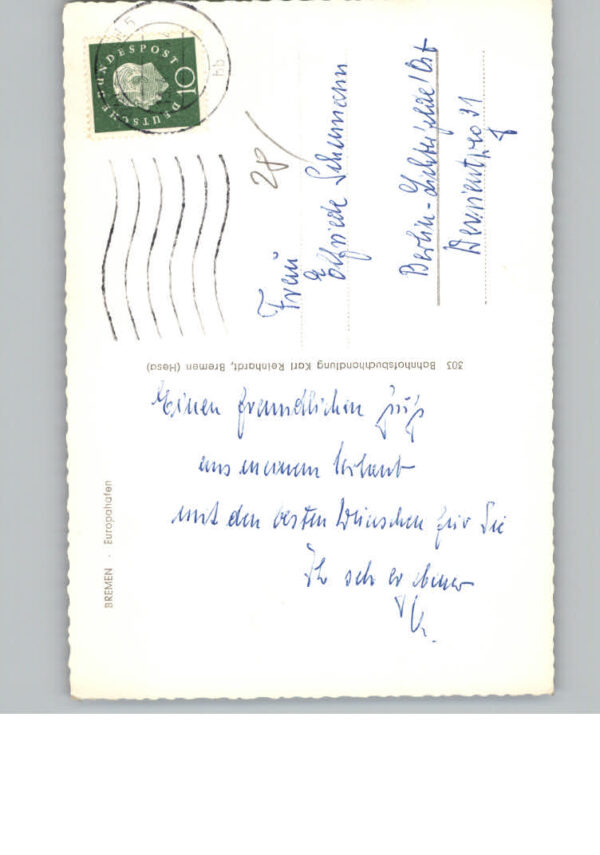 DEUTSCHE BUNDESPOST
10
28/
Frau
Elfriede Schumann
Berlin-Lichterfelde/Ost
31
303 Bahnhofsbuchhandlung Karl Reinhardt, Bremen (Hesa)
BREMEN · Europahafen
Einen freundlichen Gruß
aus meinem Urlaub
mit den besten Wünschen für Sie
Ihr sehr ergebener